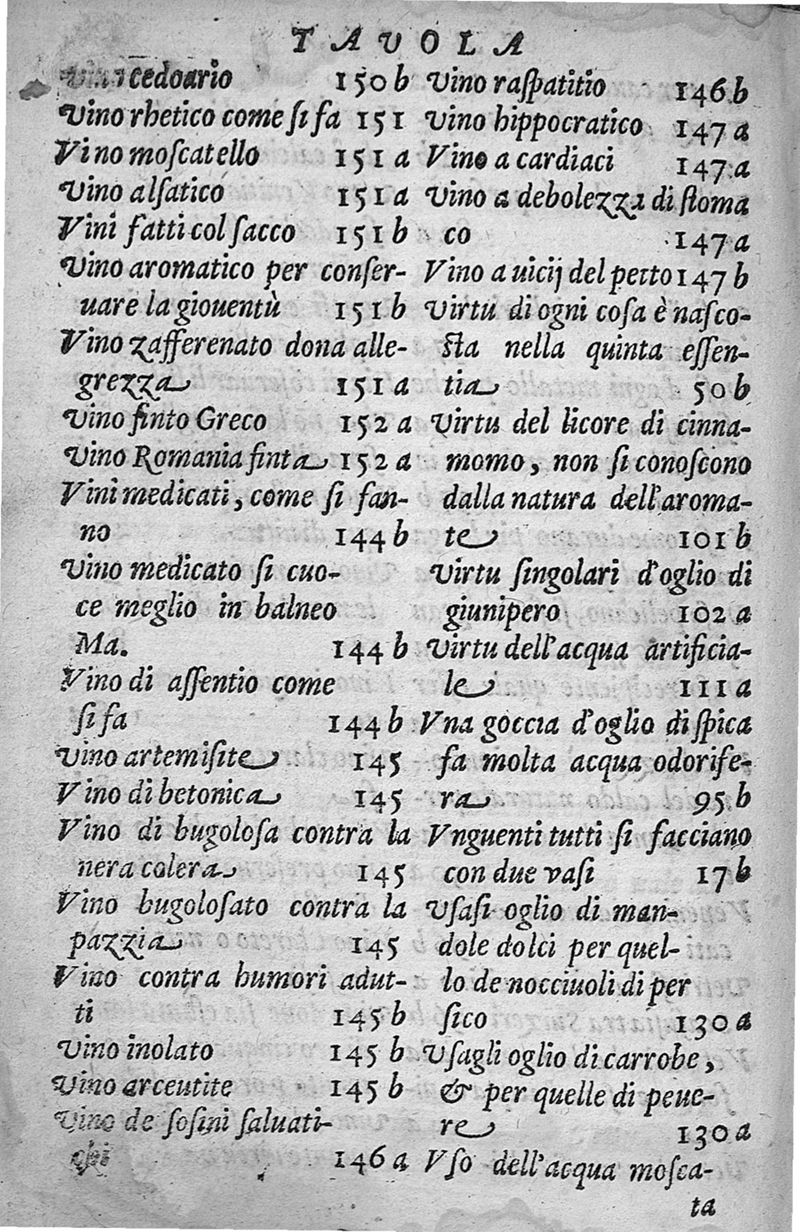 TAVOLA
Vino cedoario 150 b
Vino rhetico come si fa 151
Vino moscatello 151 a
Vino alsatico 151 a
Vini fatti col sacco 151 b
Vino aromatico per conser-
uare la giouentù 151 b
Vino zafferenato dona alle-
grezza 151 a
Vino finto Greco 152 a
Vino Romania finta 152 a
Vini medicati, come si fan-
no 144 b
Vino medicato si cuo-
ce meglio in balneo
Ma. 144 b
Vino di assentio come
si fa 144 b
Vino artemisite 145
Vino di betonica 145
Vino di bugolosa contra la
nera colera 145
Vino bugolosato contra la
pazzia 145
Vino contra humori adut-
ti 145 b
Vino inolato 145 b
Vino arceutite 145 b
Vino de sosini saluati-
chi 146 a
Vino raspatitio 146 b
Vino hippocratico 147 a
Vino a cardiaci 147 a
Vino a debolezza di stoma
co 147 a
Vino a uicij del petto 147 b
Virtu di ogni cosa è nasco-
sta nella quinta essen-
tia 50 b
Virtu del licore di cinna-
momo, non si conoscono
dalla natura dell'aroma-
te 101 b
Virtu singolari d'oglio di
giunipero 102 a
Virtu dell'acqua artificia-
le 111 a
Vna goccia d'oglio di spica
fa molta acqua odorife-
ra 95 b
Vnguenti tutti si facciano
con due vasi 17 b
Vsasi oglio di man-
dole dolci per quel-
lo de nocciuoli di per
sico 130 a
Vsagli oglio di carrobe,
& per quelle di peue-
re 130 a
Vso dell'acqua mosca-
ta